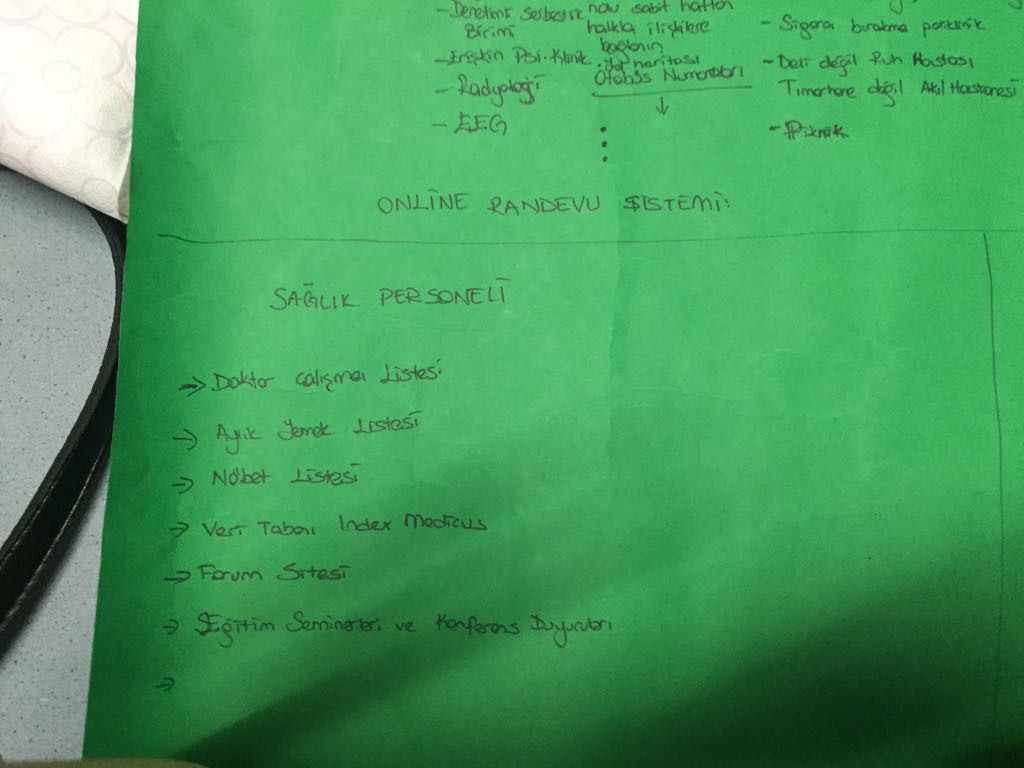 - Denetimli Serbestlik
Birimi
- Erişkin Psi. Klinik
- Radyoloji
- EEG
sabit hattan
halkla ilişkilere
bağlanın
. yer haritası
Otobüs Numaraları
↓
- Sigara bırakma poliklinik
- Deli değil Ruh Hastası
Tımarhane değil Akıl Hastanesi
- Piknik
ONLİNE RANDEVU SİSTEMİ:
SAĞLIK PERSONELİ
→ Doktor Çalışma Listesi
→ Aylık Yemek Listesi
→ Nöbet Listesi
→ Veri Tabanı Index Medicus
→ Forum Sitesi
→ Eğitim Seminerleri ve Konferans Duyuruları
→